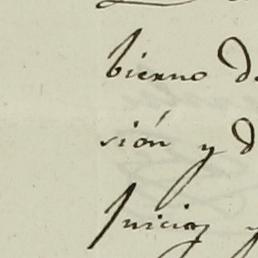 bierno d
sión y d
Juicios